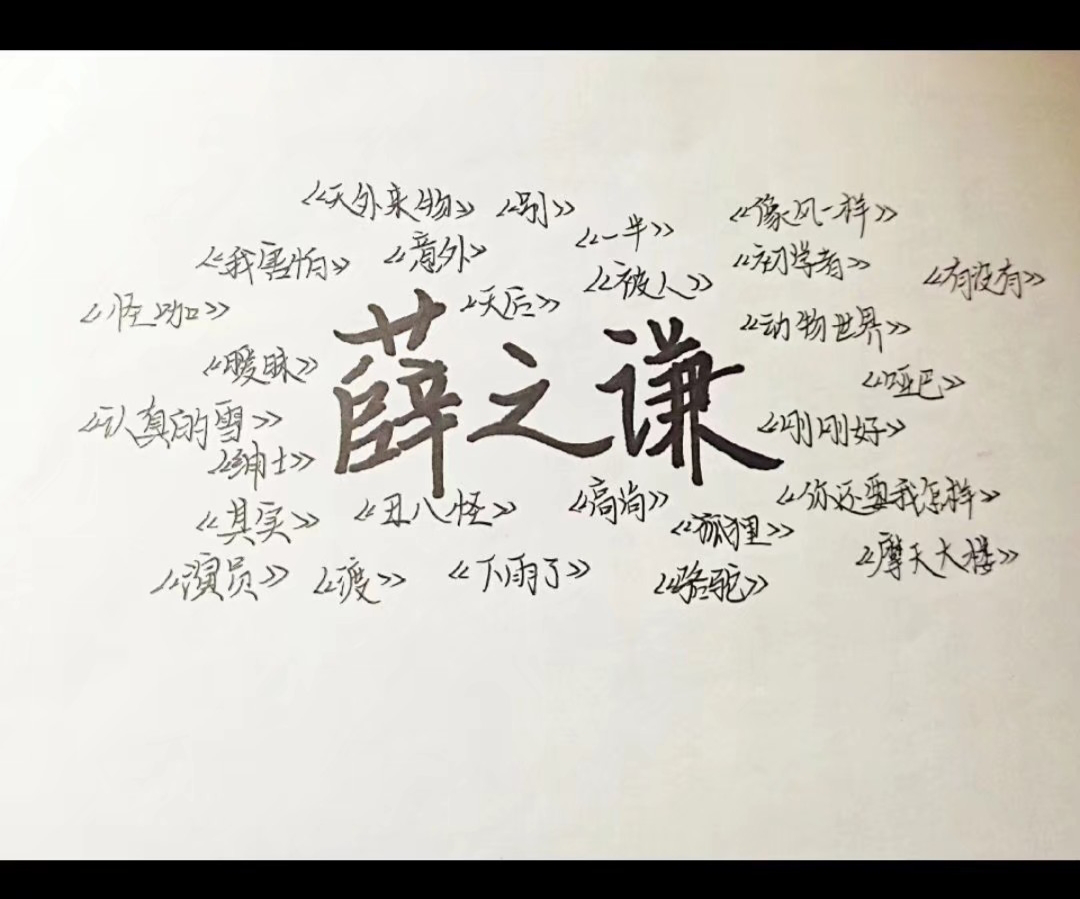 《天外来物》 《别》
《像风一样》
《一半》
《我害怕》 《意外》
《初学者》
《有没有》
《被人》
《怪咖》
《天后》
《动物世界》
《暧昧》
薛之谦
《哑巴》
《认真的雪》
《刚刚好》
《绅士》
《你还要我怎样》
《其实》 《丑八怪》 《高尚》
《狐狸》
《摩天大楼》
《演员》 《渡》 《下雨了》 《骆驼》